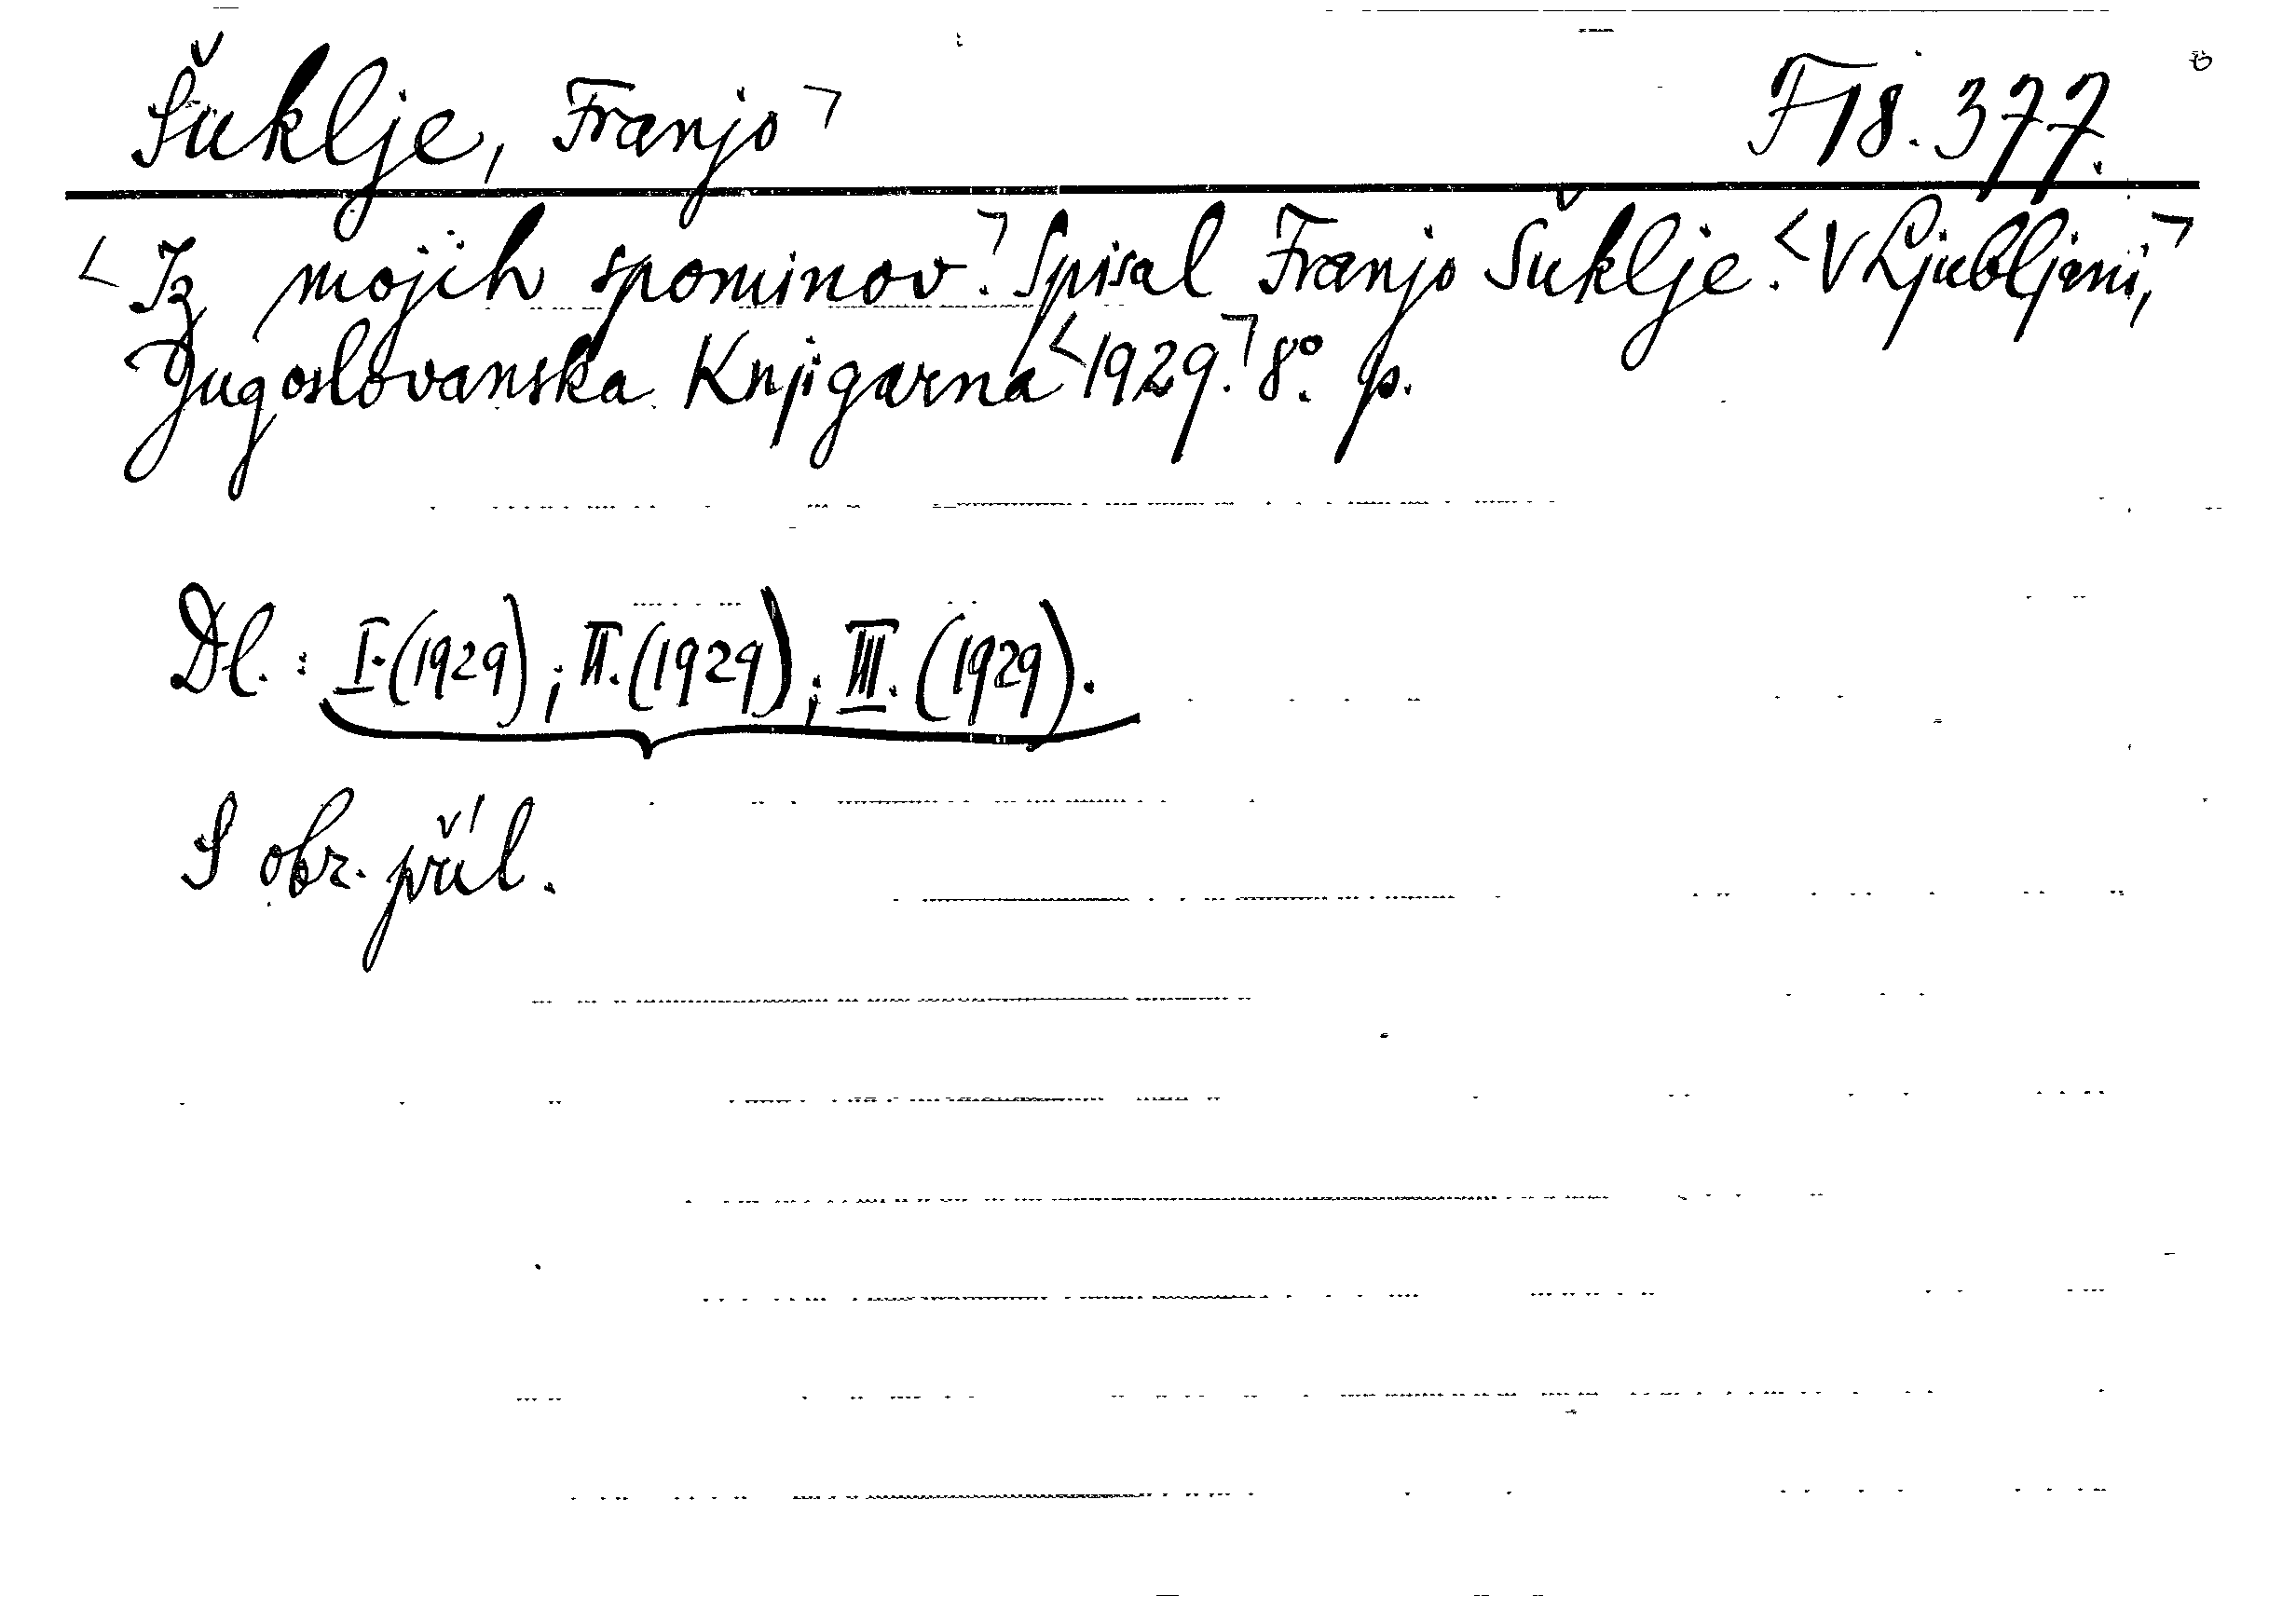 Šuklje, Franjo ㄱ F 18.377.
< Iz mojich spominov.ㄱ Spisal Franjo Šuklje. < V Ljubljani,ㄱ
Jugoslovanska Knjigarna < 1929.ㄱ 8°. p.
Dl.: I. (1929); II. (1929); III. (1929).
S obr. příl.